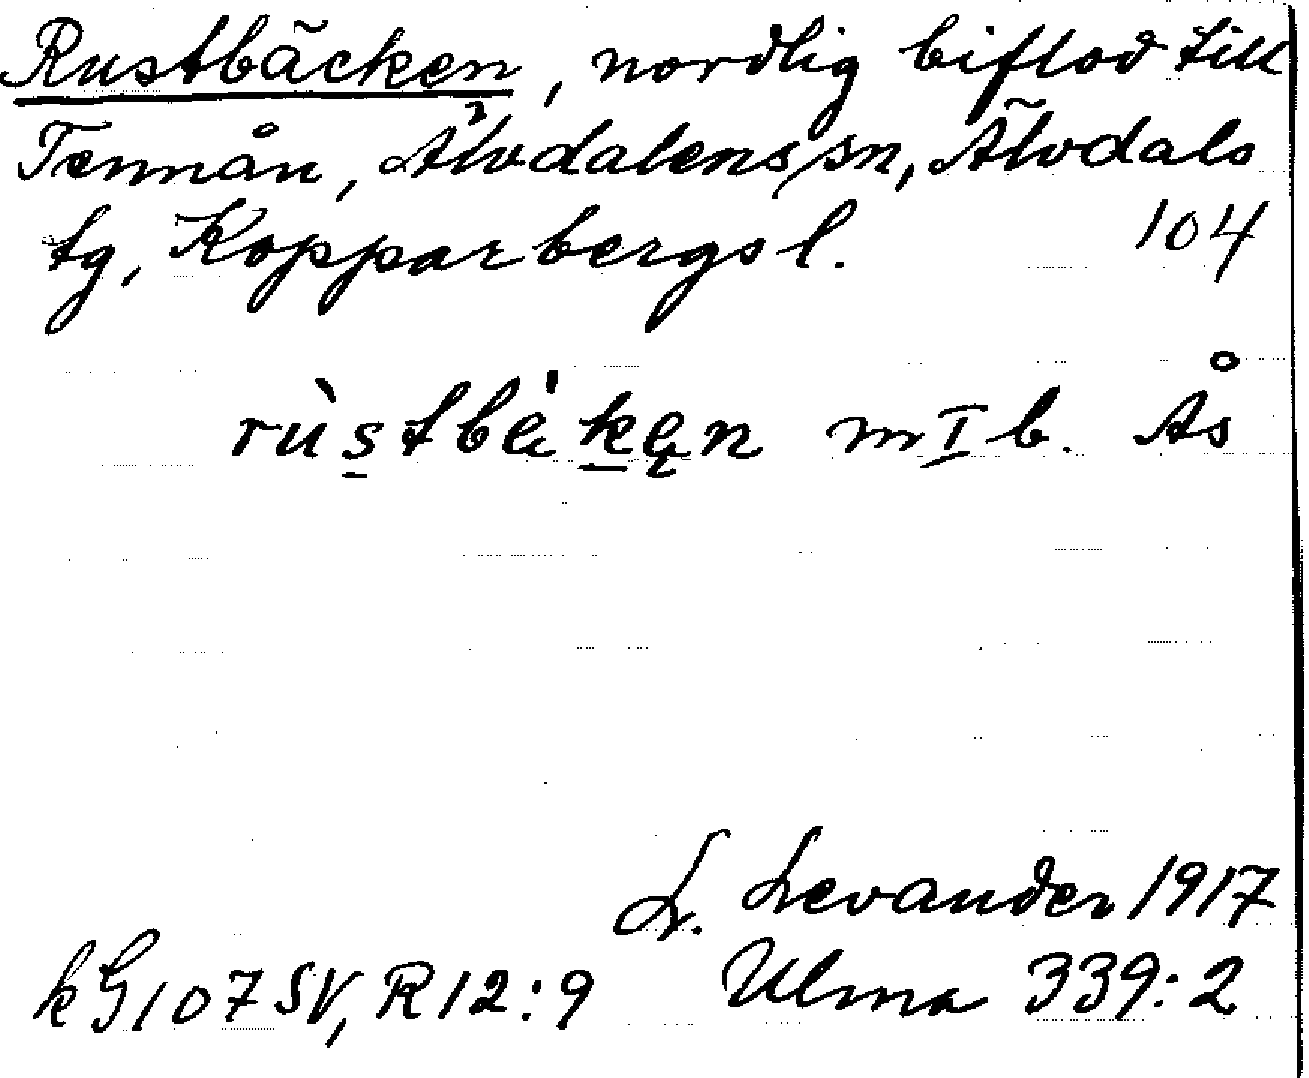 Rustbäcken, nordlig biflod till
Tennån, Älvdalens sn, Älvdals
tg, Kopparbergs l. 104
m I b. Ås
L. Levander 1917
kG 107 SV, R 12:9 Ulma 339:2